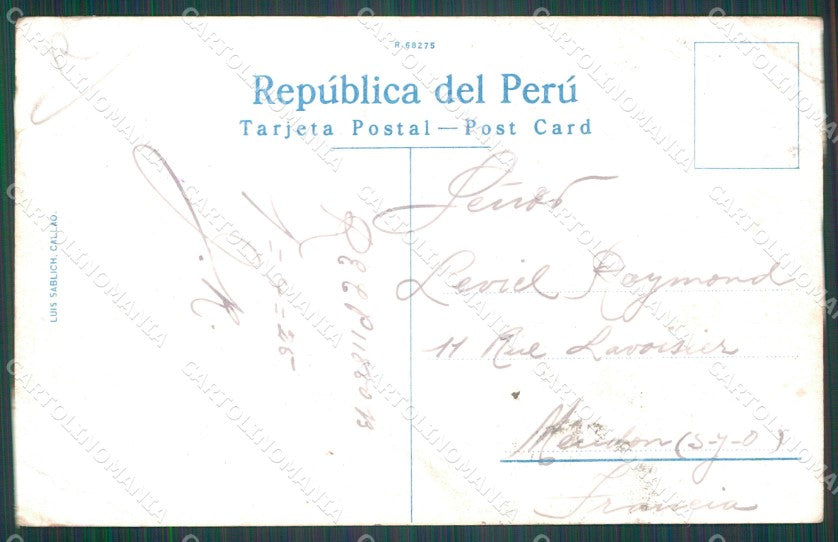 R. 68275
República del Perú
Tarjeta Postal — Post Card
LUIS SABLICH, CALLAO.
Señor
Leviel Raymond
11 Rue Lavoisier
Meudon (S-y-O)
Francia
CARTOLINOMANIA